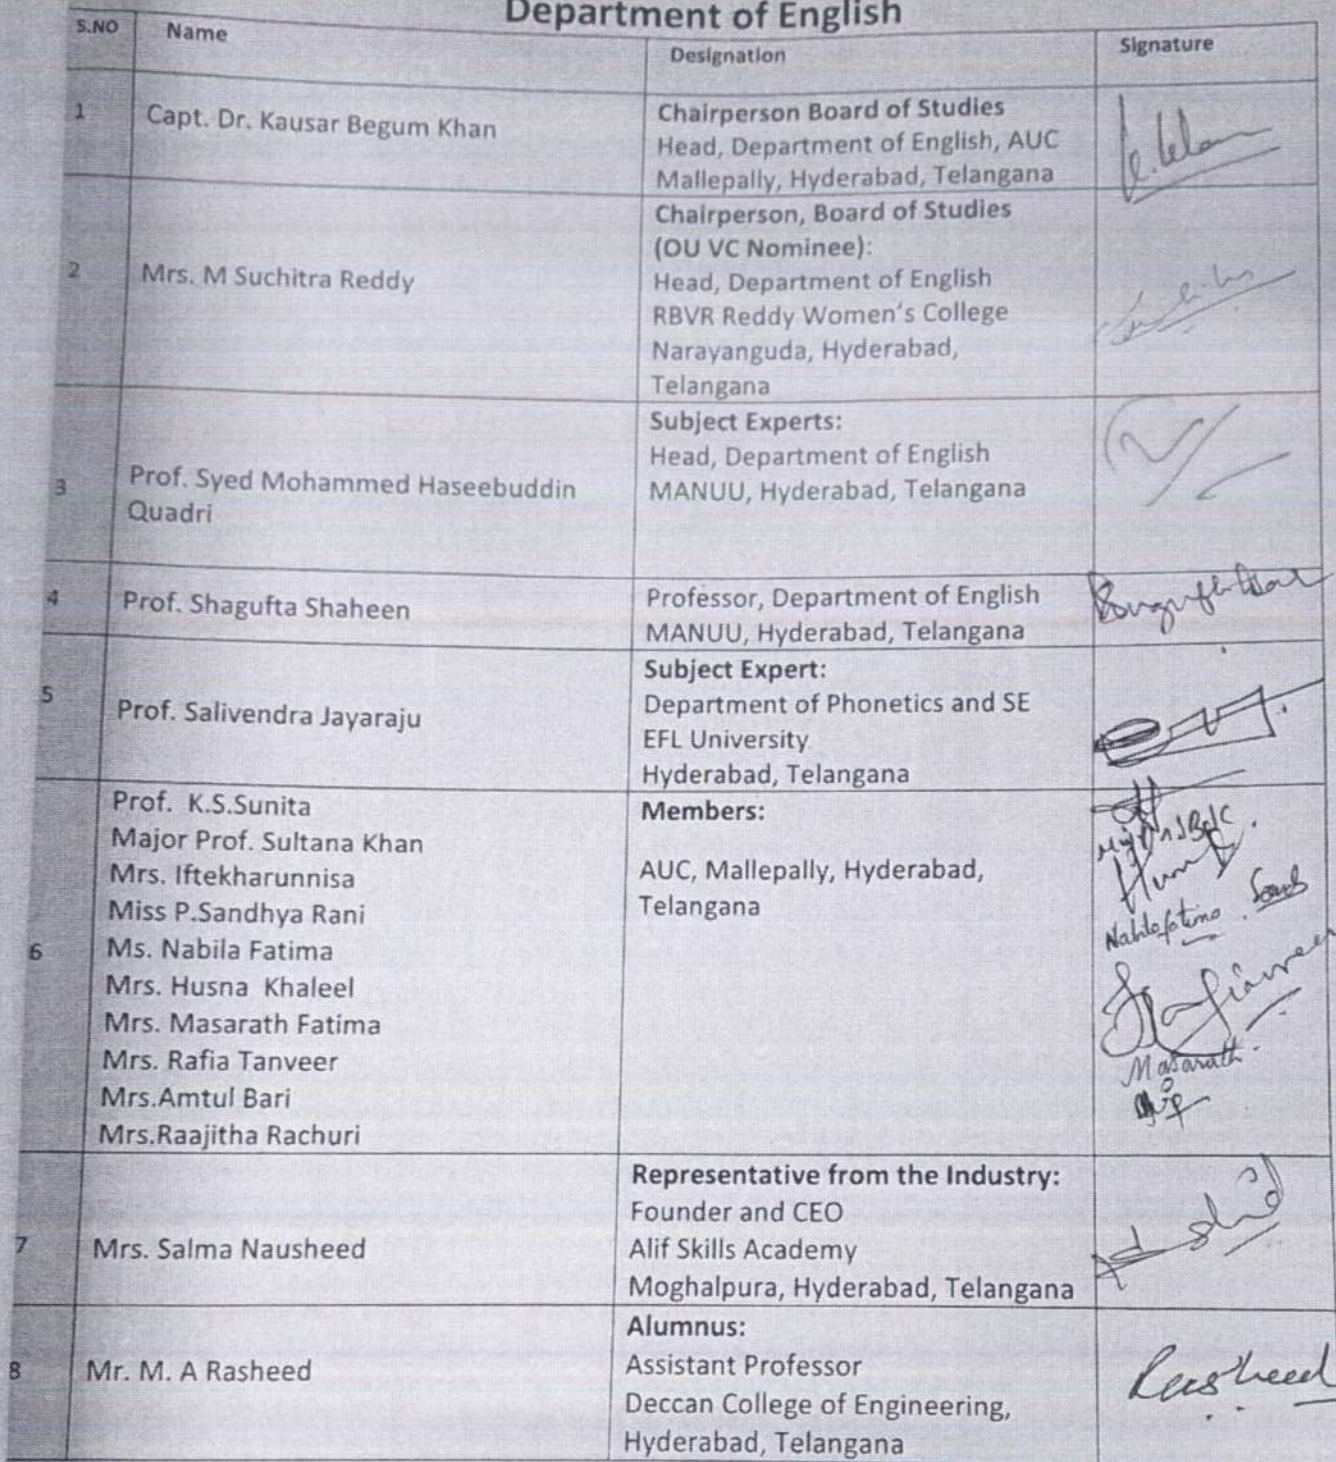 Department of English
S.NO Name Designation Signature
1 Capt. Dr. Kausar Begum Khan
Chairperson Board of Studies
Head, Department of English, AUC
Mallepally, Hyderabad, Telangana
2 Mrs. M Suchitra Reddy
Chairperson, Board of Studies
(OU VC Nominee):
Head, Department of English
RBVR Reddy Women's College
Narayanguda, Hyderabad,
Telangana
3 Prof. Syed Mohammed Haseebuddin
Quadri
Subject Experts:
Head, Department of English
MANUU, Hyderabad, Telangana
4 Prof. Shagufta Shaheen
Professor, Department of English
MANUU, Hyderabad, Telangana
5 Prof. Salivendra Jayaraju
Subject Expert:
Department of Phonetics and SE
EFL University
Hyderabad, Telangana
6
Prof. K.S.Sunita
Major Prof. Sultana Khan
Mrs. Iftekharunnisa
Miss P.Sandhya Rani
Ms. Nabila Fatima
Mrs. Husna Khaleel
Mrs. Masarath Fatima
Mrs. Rafia Tanveer
Mrs.Amtul Bari
Mrs.Raajitha Rachuri
Members:
AUC, Mallepally, Hyderabad,
Telangana
Masarath
7 Mrs. Salma Nausheed
Representative from the Industry:
Founder and CEO
Alif Skills Academy
Moghalpura, Hyderabad, Telangana
8 Mr. M. A Rasheed
Alumnus:
Assistant Professor
Deccan College of Engineering,
Hyderabad, Telangana
Rasheed